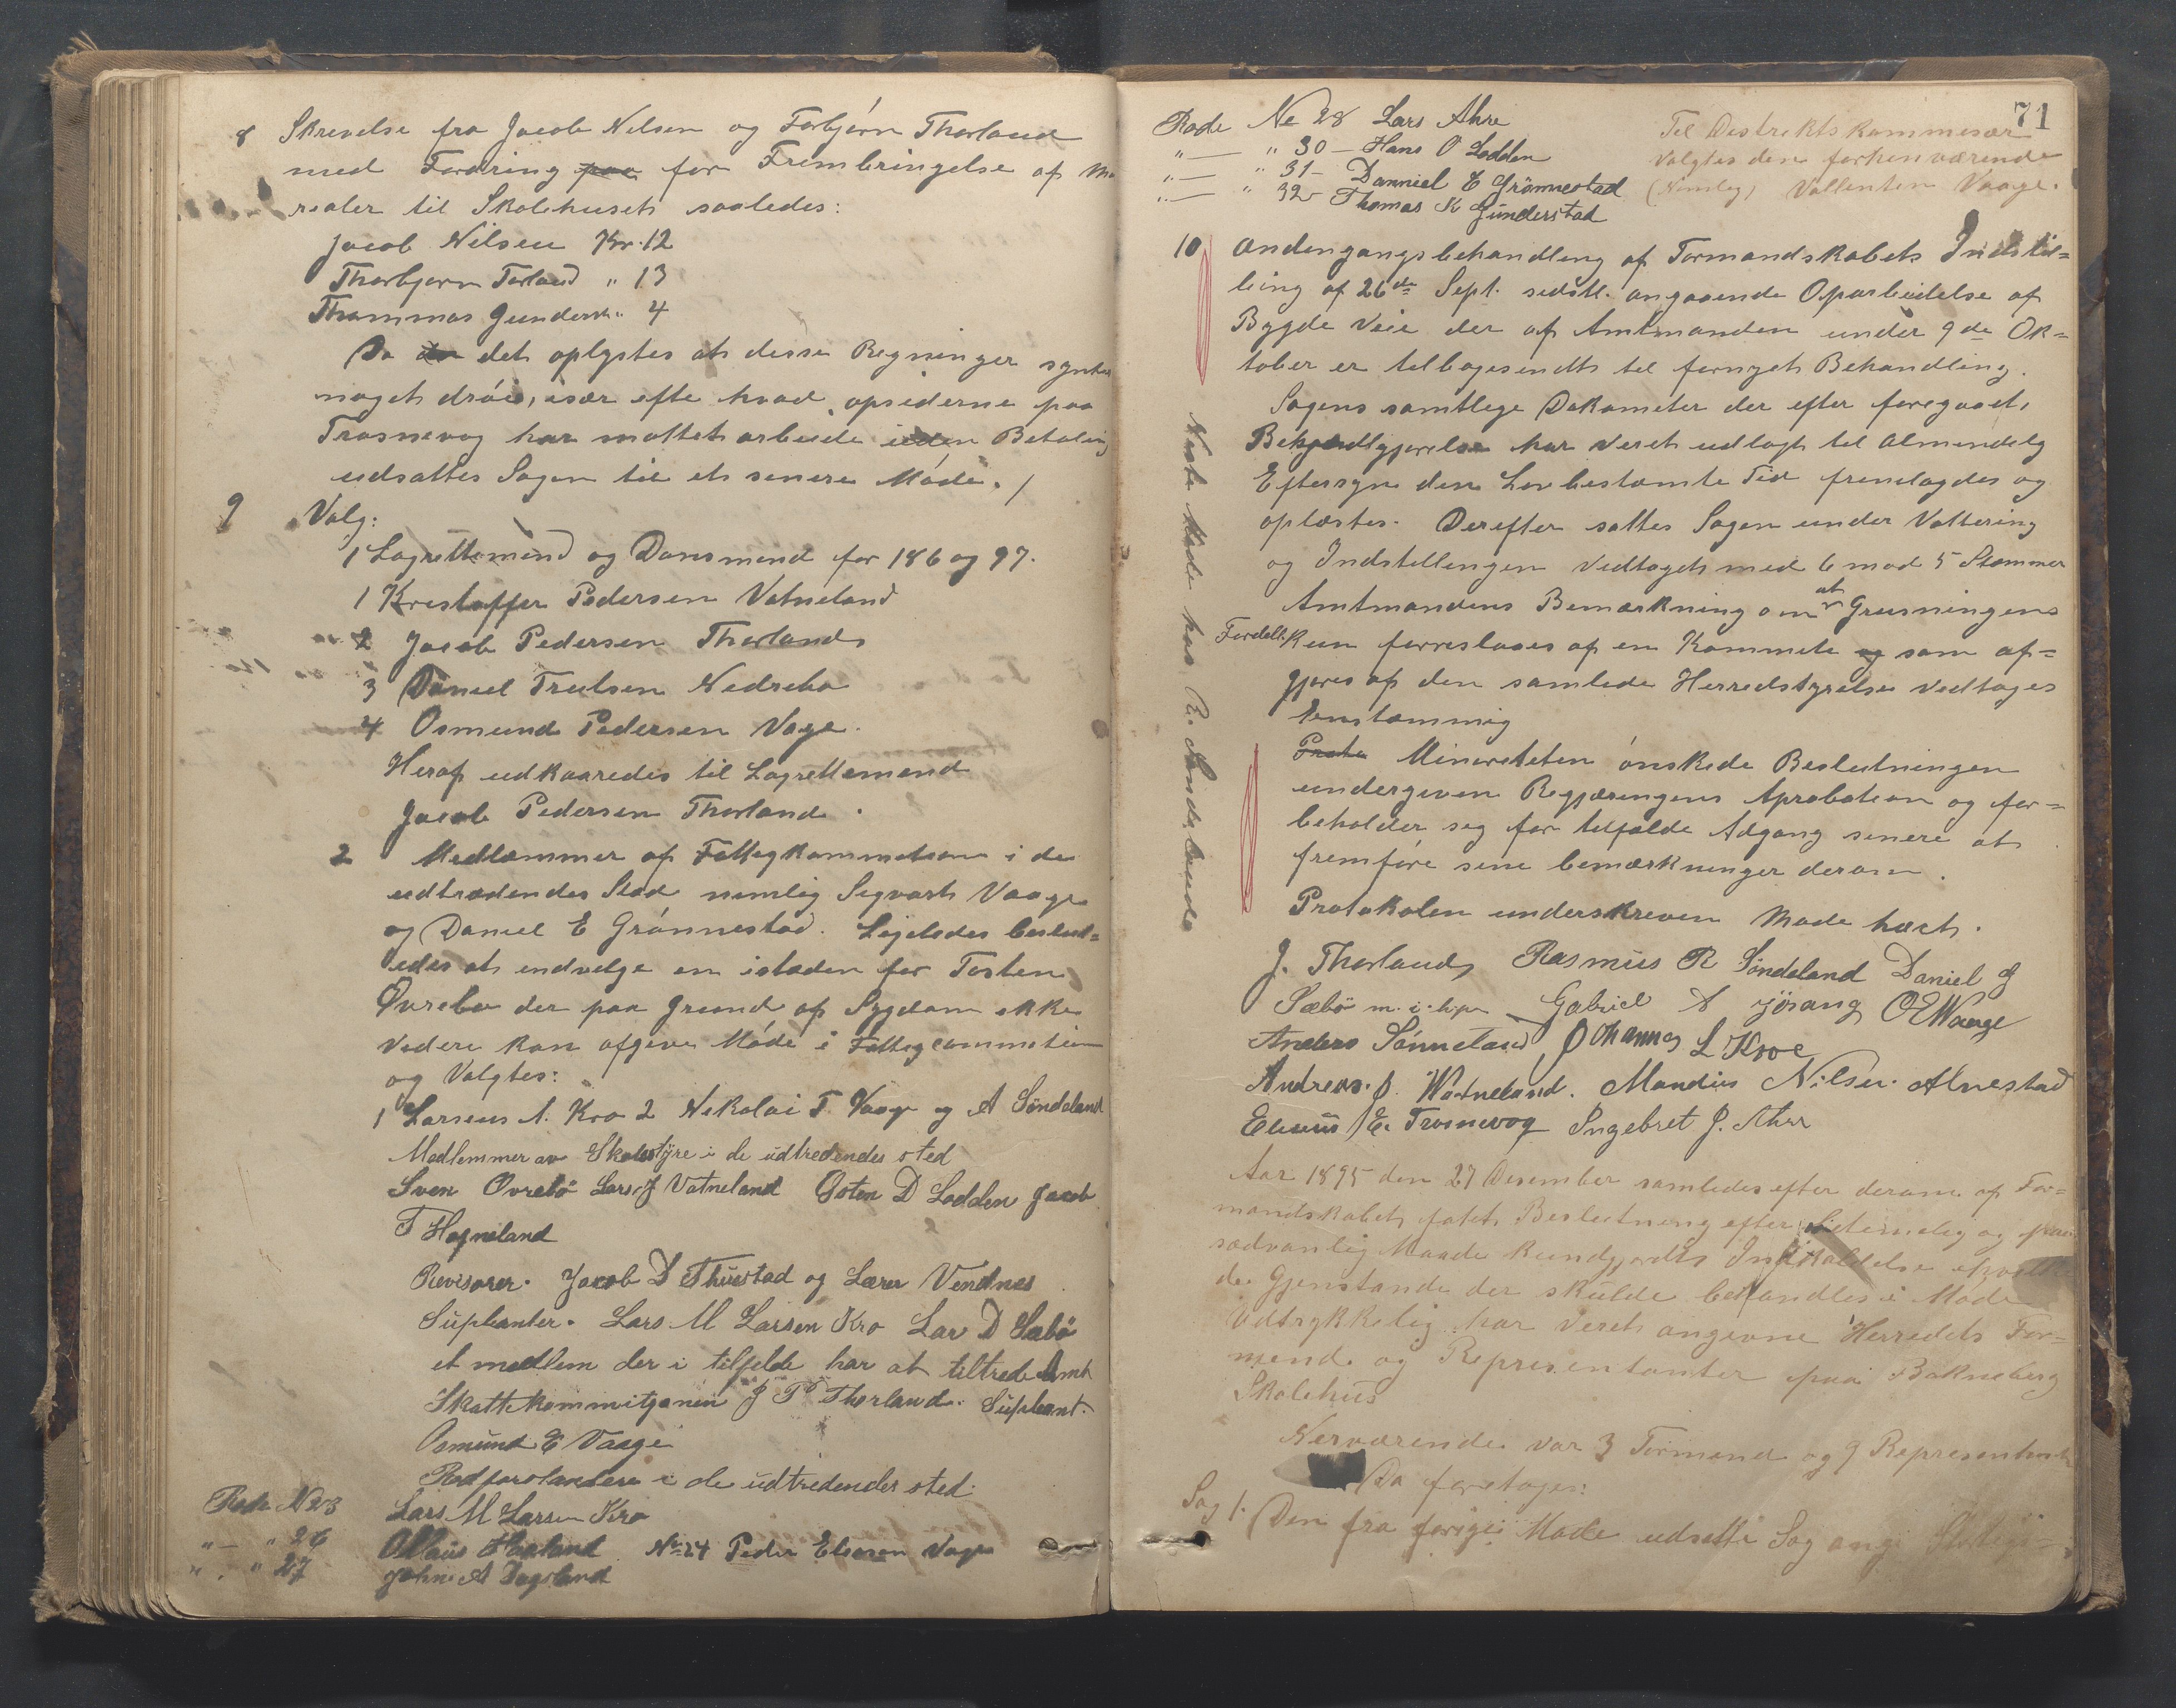 8 Skrivelse fra Jacob Nilsen og Torbjørn Thorland
med Fordring paa for Frembringelse af Ma
realer til Skolehuset saaledes:
Jacob Nilsen Kr. 12
Thorbjørn Torland " 13
Thommas Gunders. " 4
Da det oplystes at disse Regninger syntes
noget drøie, især efte hvad opsiderne paa
Trosnevog har mottet arbeide uden Betaling
udsattes Sagen til et senere Møde. /
9 Valg:
1 Lagrettemend og Domsmend for 186 og 97.
1 Kristoffer Pedersen Vatneland
2 Jacob Pedersen Thorland
3 Daniel Trulsen Nedrebø
4 Osmund Pedersen Vage.
Heraf udkaaredes til Lagrettemend
Jacob Pedersen Thorland.
2 Medlæmmer af Fattigkommitsion i de
udtrædendes Sted nemlig Segvart Vaage
og Daniel E Grønnestad. Ligeledes beslut=
edes at indvelge en istæden for Tosten
Øvrebø der paa Grund af Sygdom ikke
videre kan afgive Møde i Fattigcommition
og Valgtes:
1 Larseus A. Kro 2 Nikolai T. Vaage og A Søndeland
Medlemmer av Skolestyre i de udtredendes sted
Sven Ovrebø Lars J Vatneland Osten D Lodden Jacob
T Hogneland
Revisorer. Jacob D Thuestad og Lærer Vendnes
Supleanter. Lars M Larsen Kro Lar D Sæbø
et medlem der i tilfelde har at tiltrede Amt
Skattekommitjonen J P Thorland. Supleant.
Osmund E Vaage
Rodforstandere i de udtredendes sted.
Rode No 23 Lars M Larsen Kro
" — " 26 Ollaus Høgland No 24 Peder Eliasen Vage
" . " 27 John A Dagsland
71
Rode No 28 Lars Ahre
" — " 30 — Hans O Lodden
" — " 31 — Danniel E Grønnestad
" — " 32 — Thomas K Gunderstad
Til Distriktskommisær
Valgtes den forhenværende
(Nemlig) Vallentin Vaage.
10 Andengangsbehandling af Formandskabets Indstil=
ling af 26de Sept. sidstl. angaaende Oparbeidelse af
Bygde Veie der af Amtmanden under 9de Ok=
tober er tilbagesendt til fornyet Behandling.
Sagens samtlige Dokumeter der efter foregaaet
Bekjendtgjørelse har veret udlagt til Almindelig
Eftersyn den Lovbestæmte Tid fremlagdes og
oplæstes. Derefter sattes Sagen under Vottering
og Indstillingen Vedtaget med 6 mod 5 Stæmmer
Amtmandens Bemærkning om at Grusningens
Fordell. kun forreslaaes af en Kommite og som af=
gjøres af den samlede Herredstyrelse vedtages
Enstæmmig
Prote Minoriteten ønskede Beslutningen
undergiven Regjæringens Aprobation og for=
beholder seg for tilfælde Adgang senere at
fremføre sine bemærkninger derom.
Protokolen underskreven Møde hævt.
Neste Møde hos R. Søndeland
J. Thorland Rasmus R Søndeland Daniel J
Sæbø m. i. h. p. Gabriel A Jøsang O E Waage
Anders Sønneland Johannes L Kroe
Andreas J. Watneland. Mandius Nilsen Alnestad
Elieus E. Trosnevog Ingebret J. Ahre
Aar 1895 den 27 Desember samledes efter derom af For=
mandskabet fatet Beslutning efter betimelig og paa
sædvanlig Maade kundgjordte Indkaldelse
de Gjenstande der skulde behandles i Møde
Udtrykkelig har veret angivne Herredets For=
mend og Representanter paa Bakneberg
Skolehus
Nerværende var 3 Formend og 9 Representant
Da foretages:
Sag 1. Den fra forige Møde udsatte Sag ang.